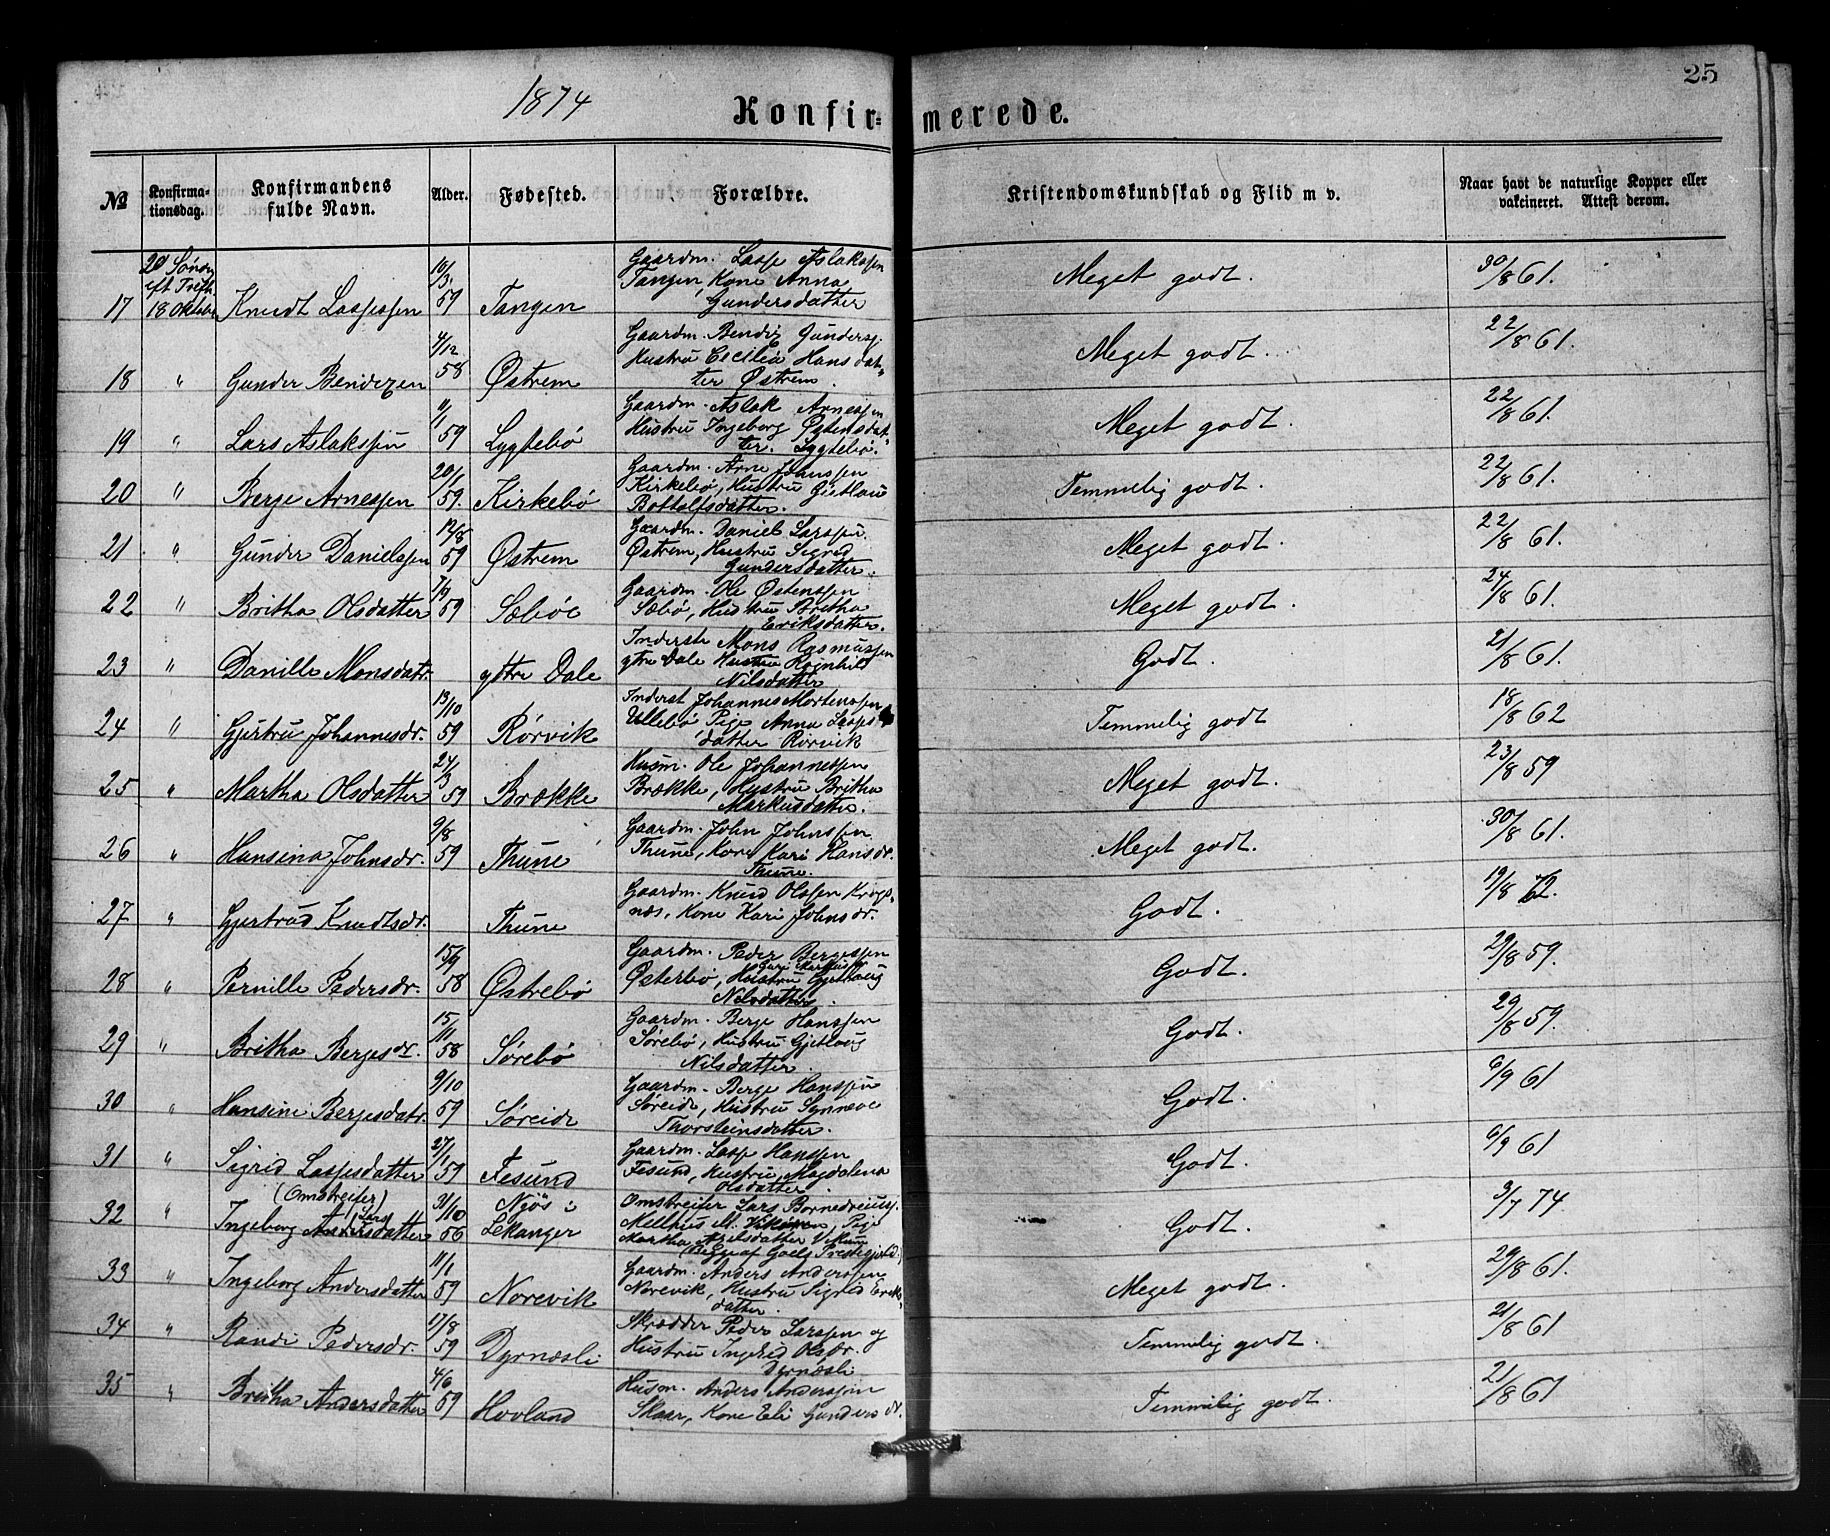 25
1874
Konfir= merede.
№ Konfirma-tionsdag. Konfirmandens fulde Navn. Alder. Fødested. Forældre. Kristendomskundskab og Flid m v. Naar havt de naturlige Kopper eller vakcineret. Attest derom.
20 Sønd. eft Trefh. 18 Oktober
17 Knudt Lassessen 10/3 59 Tangen Gaardm. Lasse Aslaksen Tangen, Kone Anna Gundersdatter Meget godt. 30/8 61.
18 " Gunder Bendixen 4/12 58 Østrem Gaardm. Bendix Gunders. Hustru Cecilia Hansdat-ter Østrem. Meget godt. 22/8 61.
19 " Lars Aslakssen 11/1 59 Lygtebø Gaardm. Aslak Arnessen Hustru Ingeborg Østensdat-ter. Lygtebø. Meget godt. 22/8 61.
20 " Berge Arnessen 20/1 59. Kirkebø Gaardm. Arne Johnssen Kirkebø, Hustru Gjetlau Bottolfsdatter. Temmelig godt. 22/8 61.
21 " Gunder Danielssen 12/8 59 Østrem Gaardm. Daniel Larssen. Østrem, Hustru Sigrid Gundersdatter. Meget godt. 22/8 61.
22 " Britha Olsdatter 59 Sæbøe Gaardm. Ole Østenssen Sæbø, Hustru Britha Eriksdatter. Meget godt. 24/8 61.
23 " Danille Monsdatr. ytre Dale Inderste Mons Rasmussen ytre Dale Hustru Ragnhild Nilsdatter Godt. 21/8 61.
24 " Gjertru Johannesdr. 13/10 59 Rørvik Inderst Johannes Mortenssen Ullebø Pige Anna Lasses datter Rørvik Temmelig godt 18/8 62
25 " Martha Olsdatter 24/3 59 Brække Husm. Ole Johannessen Brække, Hustru Britha Markusdatter. Meget godt. 23/8 59
26 " Hansina Johnsdr. 9/8 59 Thune Gaardm. John Johnssen Thune, Kone Kari Hansdr. Thune. Meget godt. 30/8 61.
27 " Gjertrud Knudtsdr. Thune Gaardm. Knud Olssen næs, Kone Kari Johnsdr. Godt. 19/8 72.
28 " Pernille Pedersdr. 15/9 58 Østrebø Gaardm. Peder Bergessen Østerbø, Hustru Gjetlaug Nilsdatter. Godt. 29/8 59.
29 " Britha Bergesdr. 15/11 58 Sørebø Gaardm. Berge Hanssen Sørebø, Hustru Gjetlaug Nilsdatter. Godt. 29/8 59.
30 " Hansine Bergesdatr. 9/10 59 Søreide Gaardm. Berge Hanssen Søreide, Hustru Synneve Thorsteinsdatter. Godt. 6/9 61
31 " Sigrid Lassesdatter 27/1 59 Fesund Gaardm. Lasse Hanssen Fesund, Hustru Magdalena Olsdatter. Godt. 6/9 61
32 " (Omstreifer) Ingeborg Andersdatter Lars 31/10 56 Nyøs i Lekanger Omstreifer Lars Martha (Begge af Præstegjeld.) Godt. 3/7 74
33 " Ingeborg Andersdatter 11/1 59 Norevik Gaardm. Anders Anderssen Norevik, Hustru Sigrid Eriks-datter. Meget godt. 29/8 61.
34 " Randi Pedersdr. 17/8 59 Dyrnæsli Skrædder Peder Larssen og Hustru Ingerid Olsdr. Dyrnæsli Temmelig godt. 21/8 61
35 " Britha Andersdatter 4/6 59 Hovland Husm. Anders Anderssen Skaar, Kone Eli Gunders dr. Temmelig godt. 21/8 61